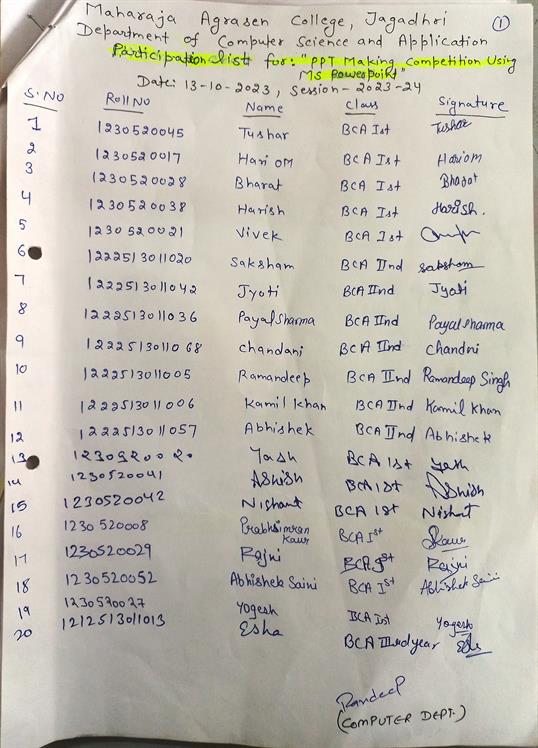 Maharaja Agrasen College, Jagadhri ①
Department of Computer Science and Application
Participation list for:- "PPT Making Competition Using
Ms Powerpoint"
Date: 13-10-2023, Session-2023-24
S.No Roll No Name Class Signature
1 1230520045 Tushar BCA Ist Tushar
2 1230520017 Hari OM BCA Ist Hariom
3 1230520028 Bharat BCA Ist Bharat
4 1230520038 Harish BCA Ist Harish.
5 1230520021 Vivek BCA Ist
6 1222513011020 Saksham BCA IInd Saksham
7 1222513011042 Jyoti BCA IInd Jyoti
8 1222513011036 Payal Sharma BCA IInd Payal Sharma
9 1222513011068 Chandani BCA IInd Chandni
10 1222513011005 Ramandeep BCA IInd Ramandeep Singh
11 1222513011006 Kamil Khan BCA IInd Kamil Khan
12 1222513011057 Abhishek BCA IInd Abhishek
13 Yash BCA Ist Yash
14 1230520041 Ashish BCA Ist Ashish
15 1230520042 Nishant BCA Ist Nishant
16 1230520008 Prabhsimran Kaur BCA Ist Kaur
17 1230520029 Rajni BCA Ist Rajni
18 1230520052 Abhishek Saini BCA Ist Abhishek Saini
19 1230520027 Yogesh BCA Ist Yogesh
20 1212513011013 Esha BCA IIIrd year
(COMPUTER DEPT.)